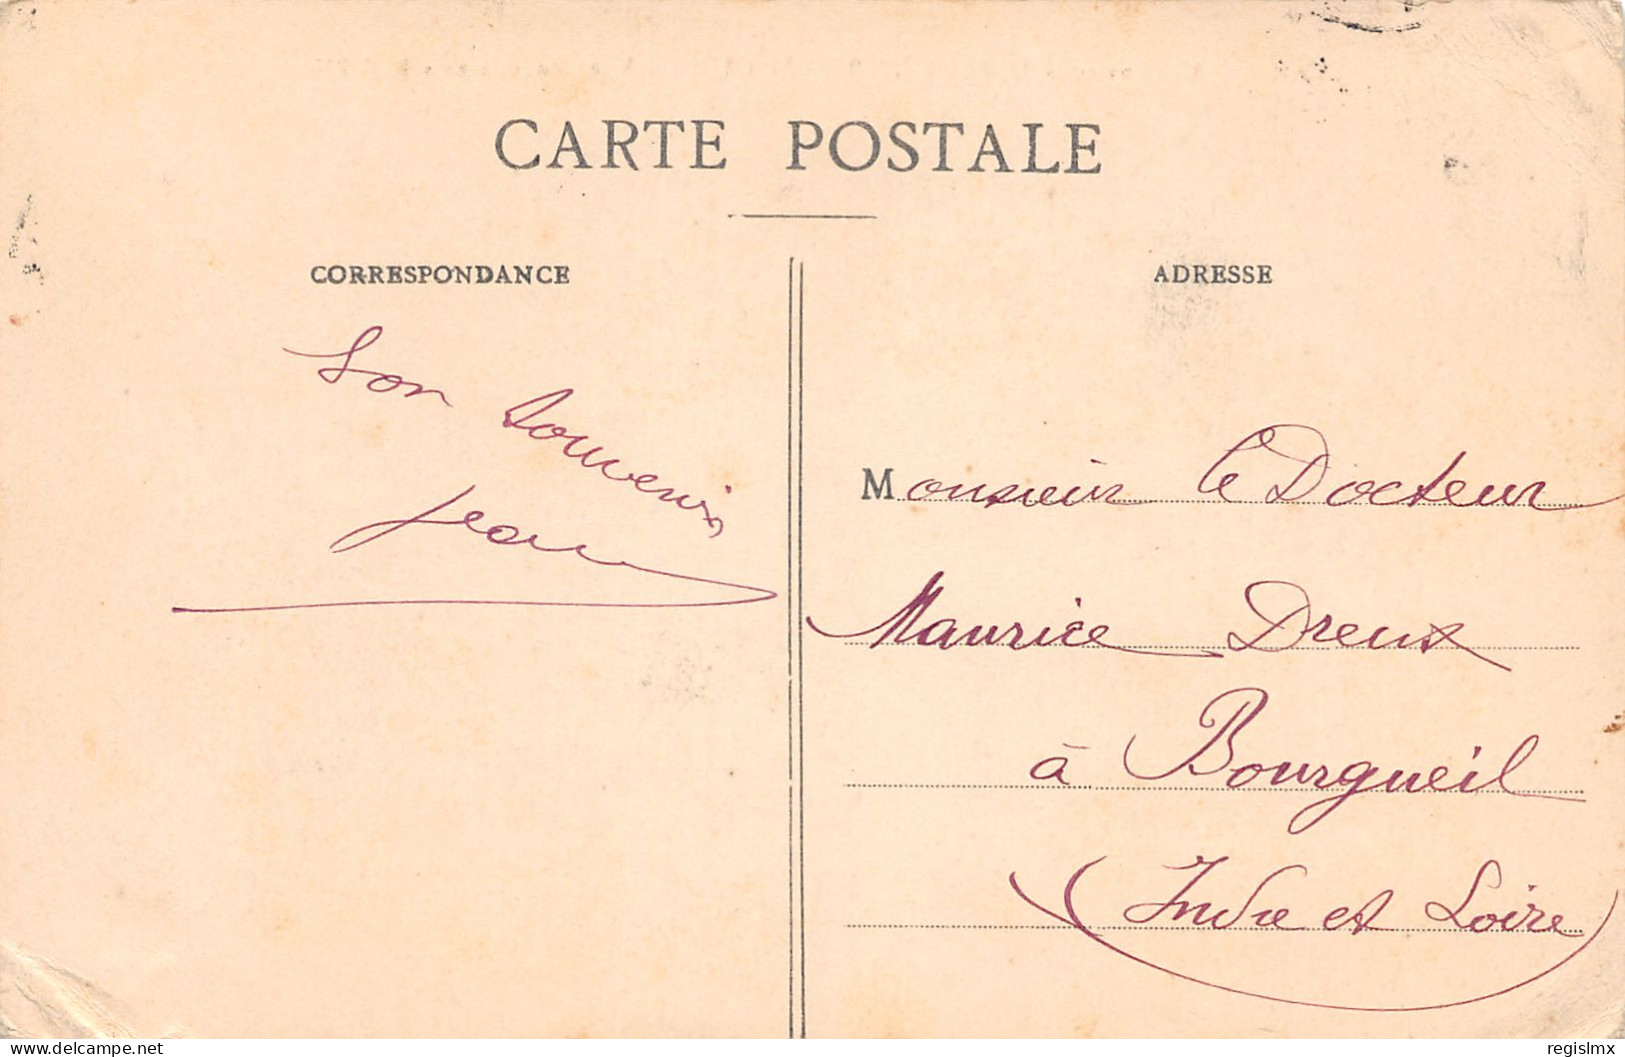 CARTE POSTALE
CORRESPONDANCE
ADRESSE
Bon souvenir
Jean
Monsieur le Docteur
Maurice Dreux
à Bourgueil
(Indre et Loire)
delcampe.net
regislmx